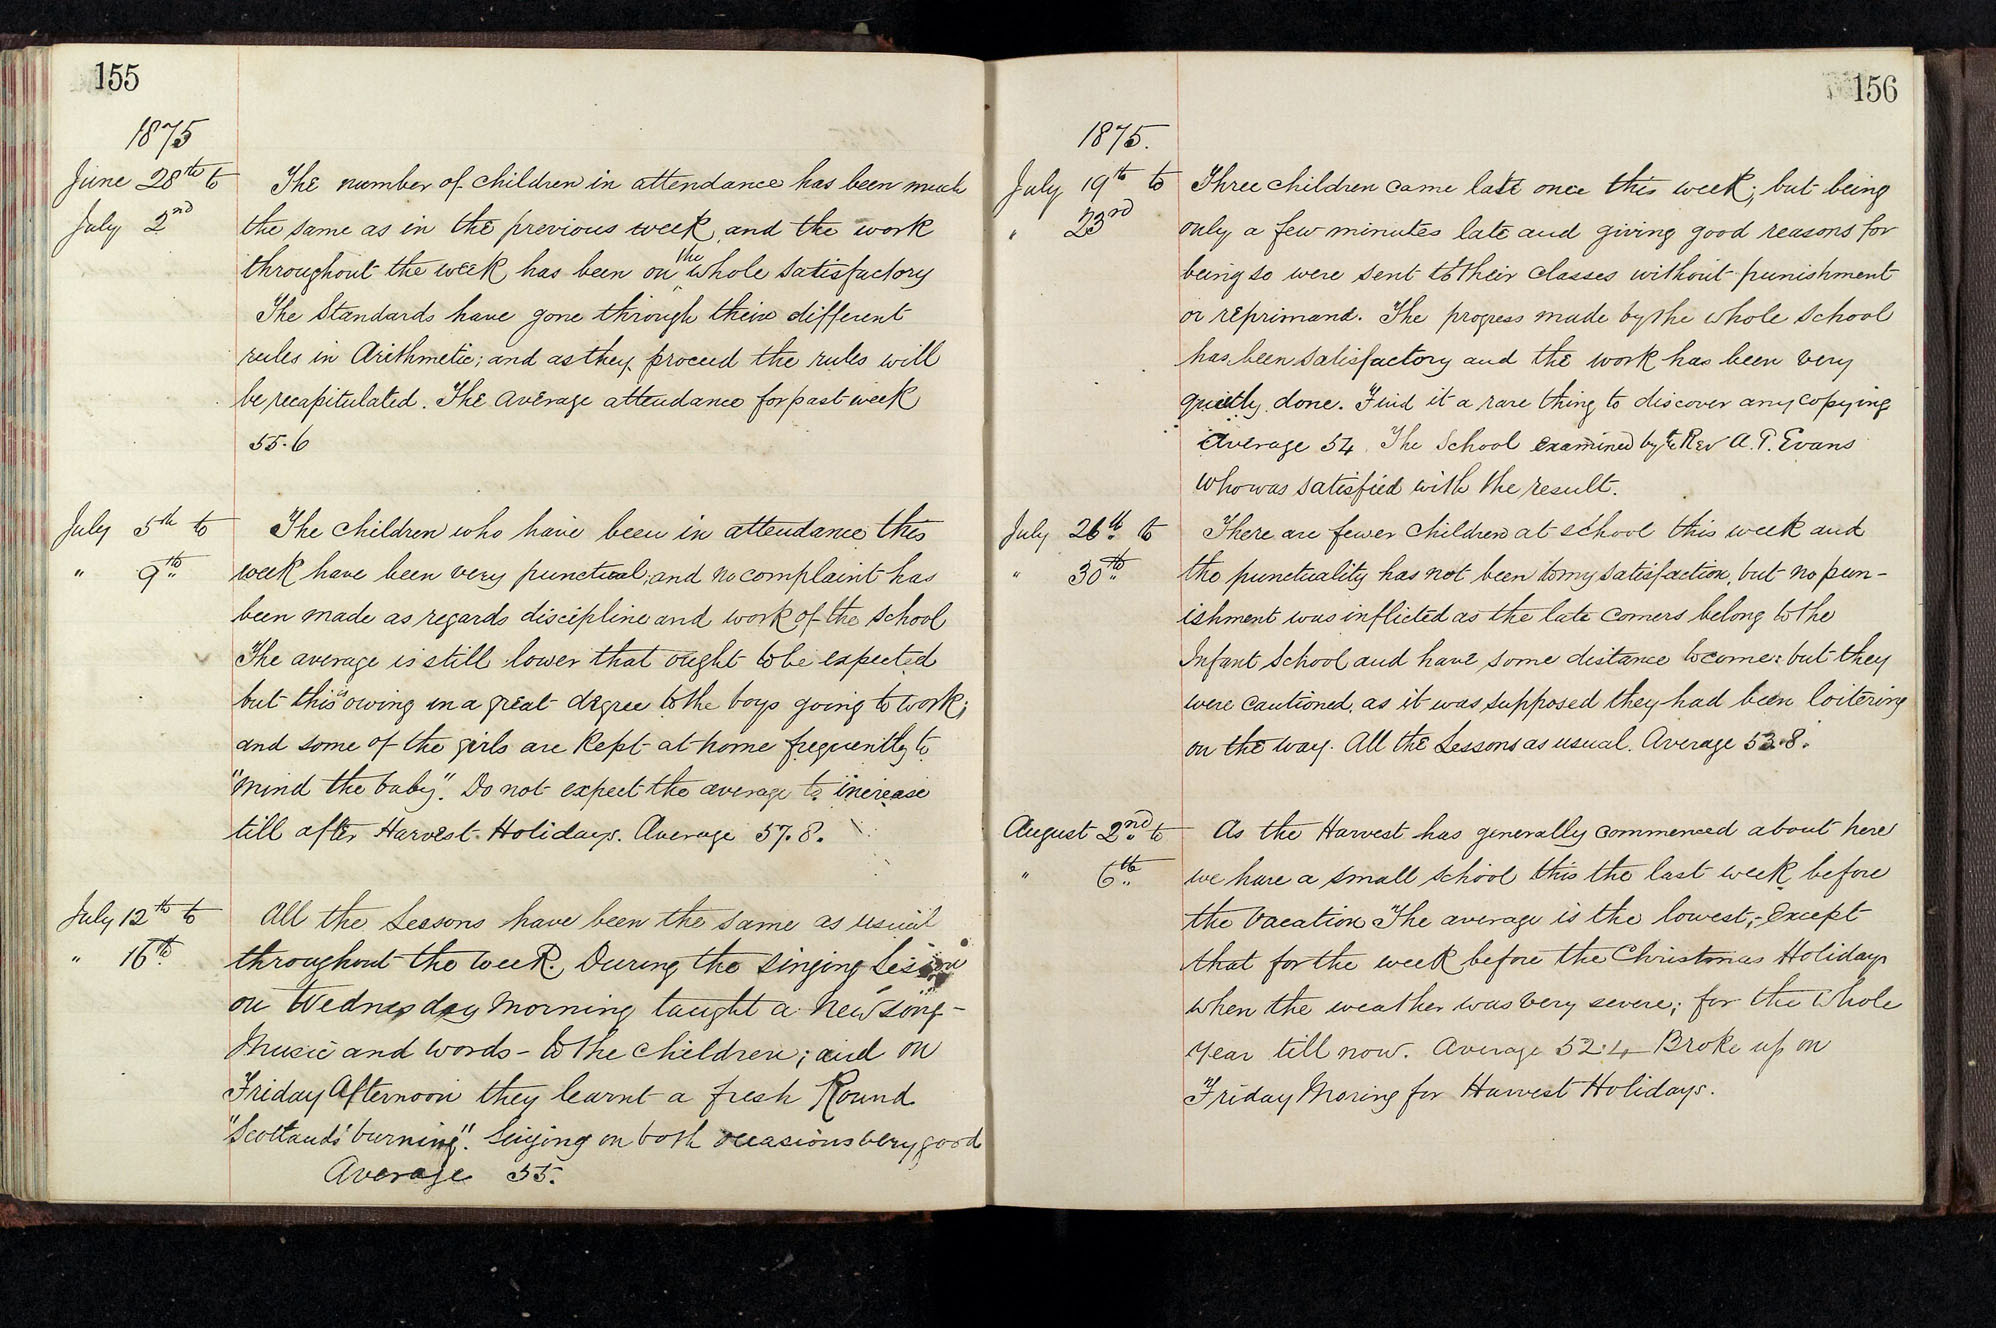 155
1875
June 28th to
July 2nd
The number of children in attendance has been much
the same as in the previous week, and the work
throughout the week has been on the whole satisfactory
The Standards have gone through their different
rules in Arithmetic; and as they proceed the rules will
be recapitulated. The average attendance for past week
55.6
July 5th to
" 9th
The children who have been in attendance this
week have been very punctual, and no complaint has
been made as regards discipline and work of the school
The average is still lower that ought to be expected
but this is owing in a great degree to the boys going to work;
and some of the girls are kept at home frequently to
"mind the baby". Do not expect the average to increase
till after Harvest Holidays. Average 57.8.
July 12th to
" 16th
All the Lessons have been the same as usual
throughout the week. During the singing Lesson
on Wednesday Morning taught a new song -
Music and words - to the children; and on
Friday Afternoon they learnt a fresh Round
"Scotland's burning". Singing on both occasions very good
Average 55.
156
1875.
July 19th to
" 23rd
Three children came late once this week; but being
only a few minutes late and giving good reasons for
being so were sent to their classes without punishment
or reprimand. The progress made by the whole school
has been satisfactory and the work has been very
quietly done. Find it a rare thing to discover any copying
Average 54. The School examined by the Rev A. P. Evans
who was satisfied with the result.
July 26th to
" 30th
There are fewer children at school this week and
the punctuality has not been to my satisfaction, but no pun-
ishment was inflicted as the late comers belong to the
Infant School and have some distance to come: but they
were cautioned, as it was supposed they had been loitering
on the way. All the Lessons as usual. Average 53.8.
August 2nd to
" 6th
As the Harvest has generally commenced about here
we have a small school this the last week before
the vacation The average is the lowest,- Except
that for the week before the Christmas Holidays
when the weather was very severe; for the whole
year till now. Average 52.4 Broke up on
Friday Moring for Harvest Holidays.